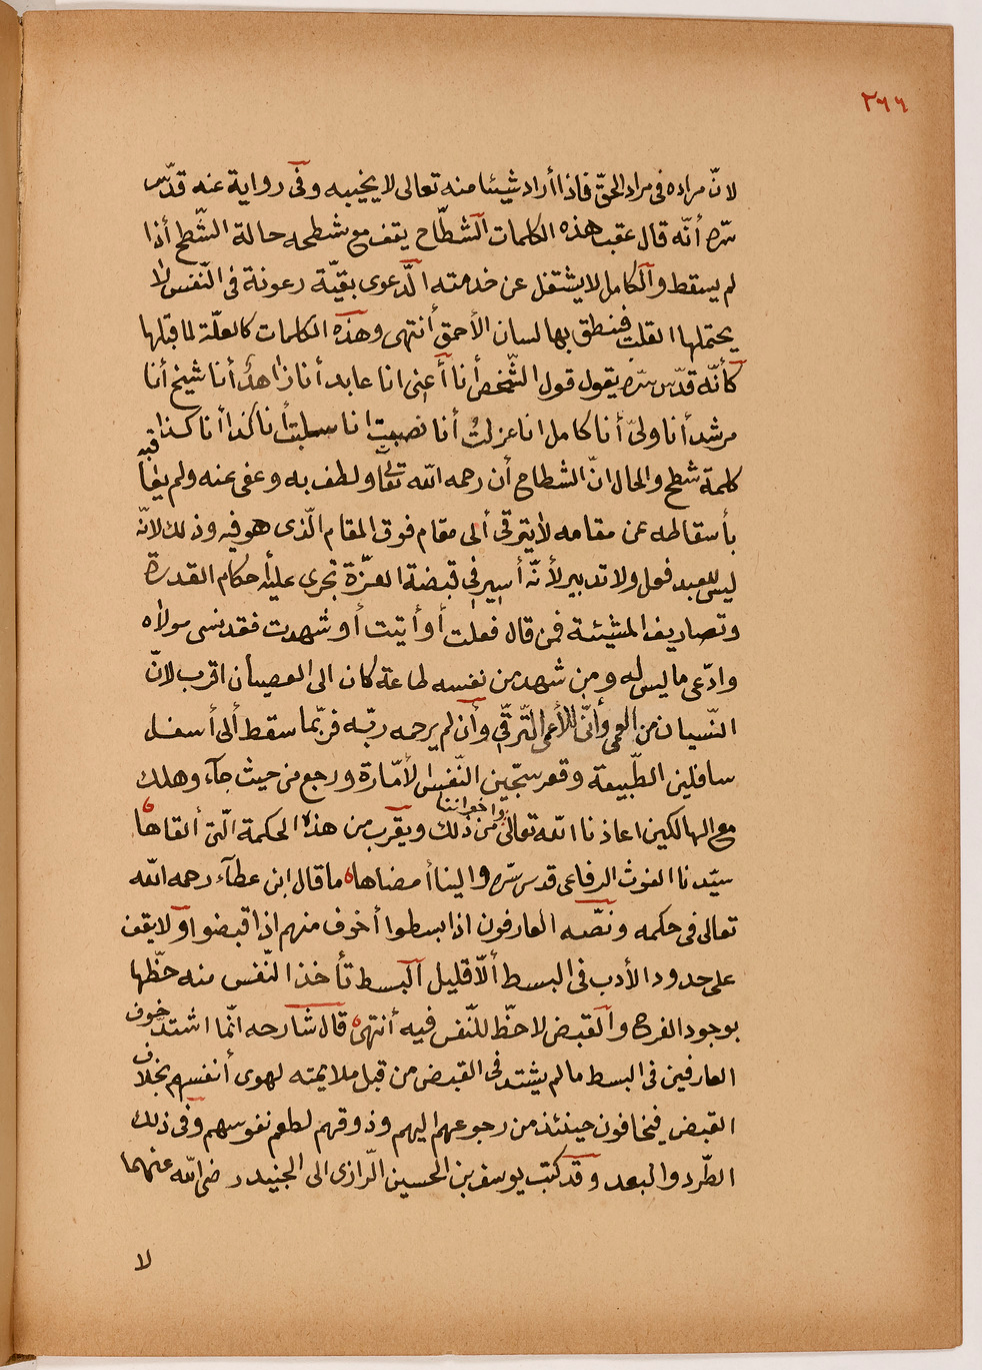 ٢٦٦
لانّ مراده فى مراد الحقّ فاذا أراد شيئا منه تعالى لا يخيبه وفى رواية عنه قدّس
سّره أنّه قال عقب هذه الكلمات الشطّاح يقف مع شطحه حالة الشّطح أذا
لم يسقط والكامل لا يشتغل عن خدمته الّدعوى بقيّة رعونة فى النّفس لا
يحتملها القلب فينطق بها لسان الأحمق أنتهى وهذه الكلمات كالعلّة لما قبلها
كأنّه قدّس سّره يقول قول الشّخص أنا أعنى انا عابد أنا زاهد أنا شيخ أنا
مرشد أنا ولىّ أنا كامل انا عزلت أنا نصبت انا سلبت أنا كذا أنا كذا
كلمة شطح والحال انّ الشطاح أن رحمه الله تعالى ولطف به وعفى عنه ولم يعاقبه
بأسقاطه عن مقامه لا يترقى ألى مقام فوق المقام الّذى هو فيه وذلك لانّه
ليس للعبد فعل ولا تدبير لأنّه أسير فى قبضة العزّة تجرى عليه أحكام القدرة
وتصاريف المشيئة فمن قال فعلت أو أتيت أو شهدت فقد نسى مولاه
وادّعى ما ليس له ومن شهد من نفسه طاعة كان الى العصيان اقرب لانّ
النّسيان من العمى وأنّى للأعمى التّرقّى وأن لم يرحمه ربّه فربّما سقط ألى أسفل
سافلين الطّبيعة وقعر سجّين النّفس الأمّارة ورجع من حيث جآء وهلك
مع الهالكين اعاذنا الله تعالى واخواننا من ذلك ويقرب من هذه الحكمة الّتى ألقاها
سيّدنا الغوث الرفاعى قدس سّره والينا أمضاها ما قال ابن عطآء رحمه الله
تعالى فى حكمه ونصّه العارفون اذا بسطوا أخوف منهم اذا قبضوا او لا يقف
على حدود الأدب فى البسط ألّا قليل البسط تأخذ النّفس منه حظّها
بوجود الفرح والقبض لا حظّ للنّفس فيه أنتهى قال شارحه انّما اشتد خوف
العارفين فى البسط ما لم يشتد فى القبض من قبل ملايمته لهوى أنفسهم بخلاف
القبض فيخافون حينئذ من رجوعهم اليهم وذوقهم لطعم نفوسهم وفى ذلك
الطّرد والبعد وقد كتب يوسف بن الحسين الّرازى الى الجنيد رضى الله عنهما
لا